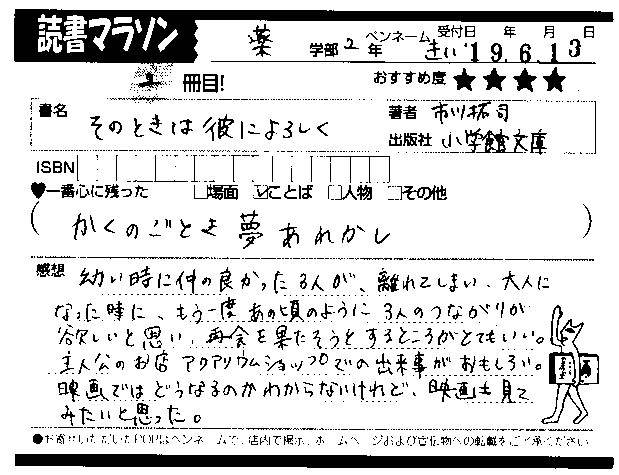 読書マラソン
薬 学部 2 年 ペンネーム きい 受付日 '19年6月13日
冊目!
おすすめ度 ★★★★
書名 そのときは彼によろしく
著者 市川拓司
出版社 小学館文庫
ISBN
♥一番心に残った □場面 ☑ことば □人物 □その他
(かくのごとき夢あれかし)
感想 幼い時に仲の良かった3人が、離れてしまい、大人に
なった時に、もう一度あの頃のように3人のつながりが
欲しいと思い、再会を果たそうとするところがとてもいい。
主人公のお店アクアリウムショップでの出来事がおもしろい。
映画ではどうなるのかわからないけれど、映画も見て
みたいと思った。
●お寄せいただいたPOPはペンネームで、店内で掲示、ホームページおよび宣伝物への転載をご了承ください